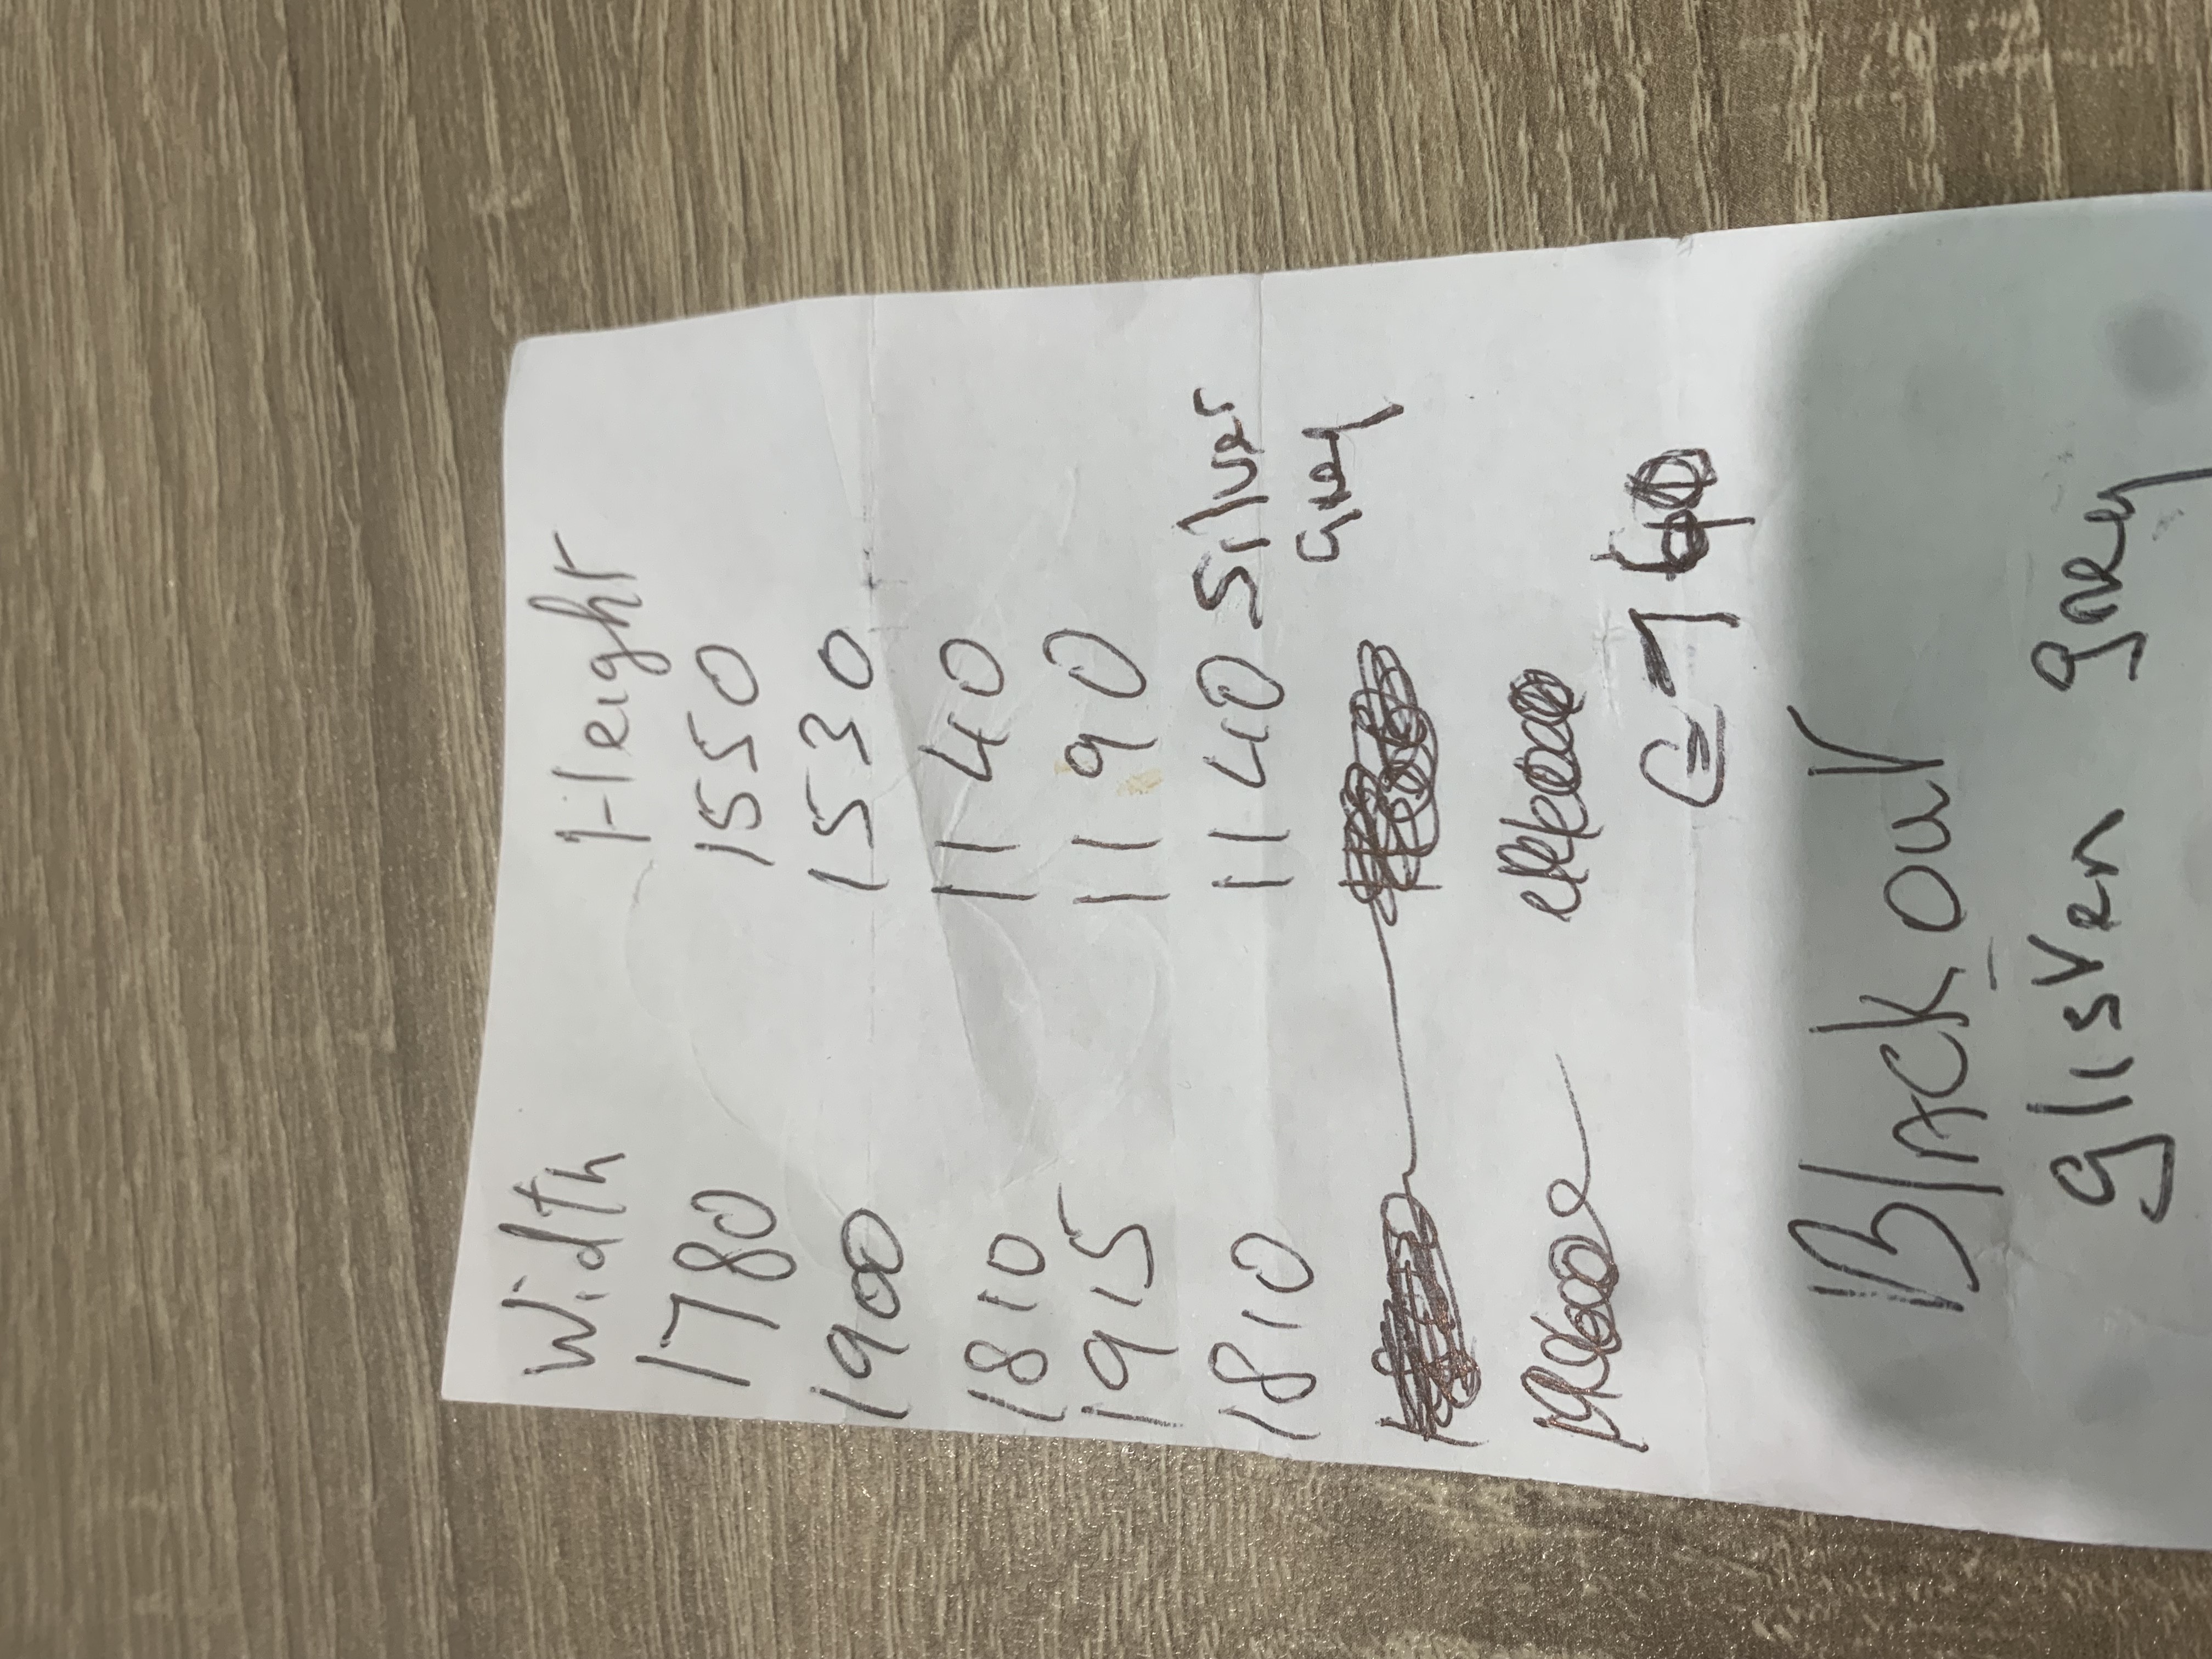 Width Height
1780 1550
1900 1530
1810 1140
1915 1190
1810 1140 Silver
Grey
Black out
glisten grey